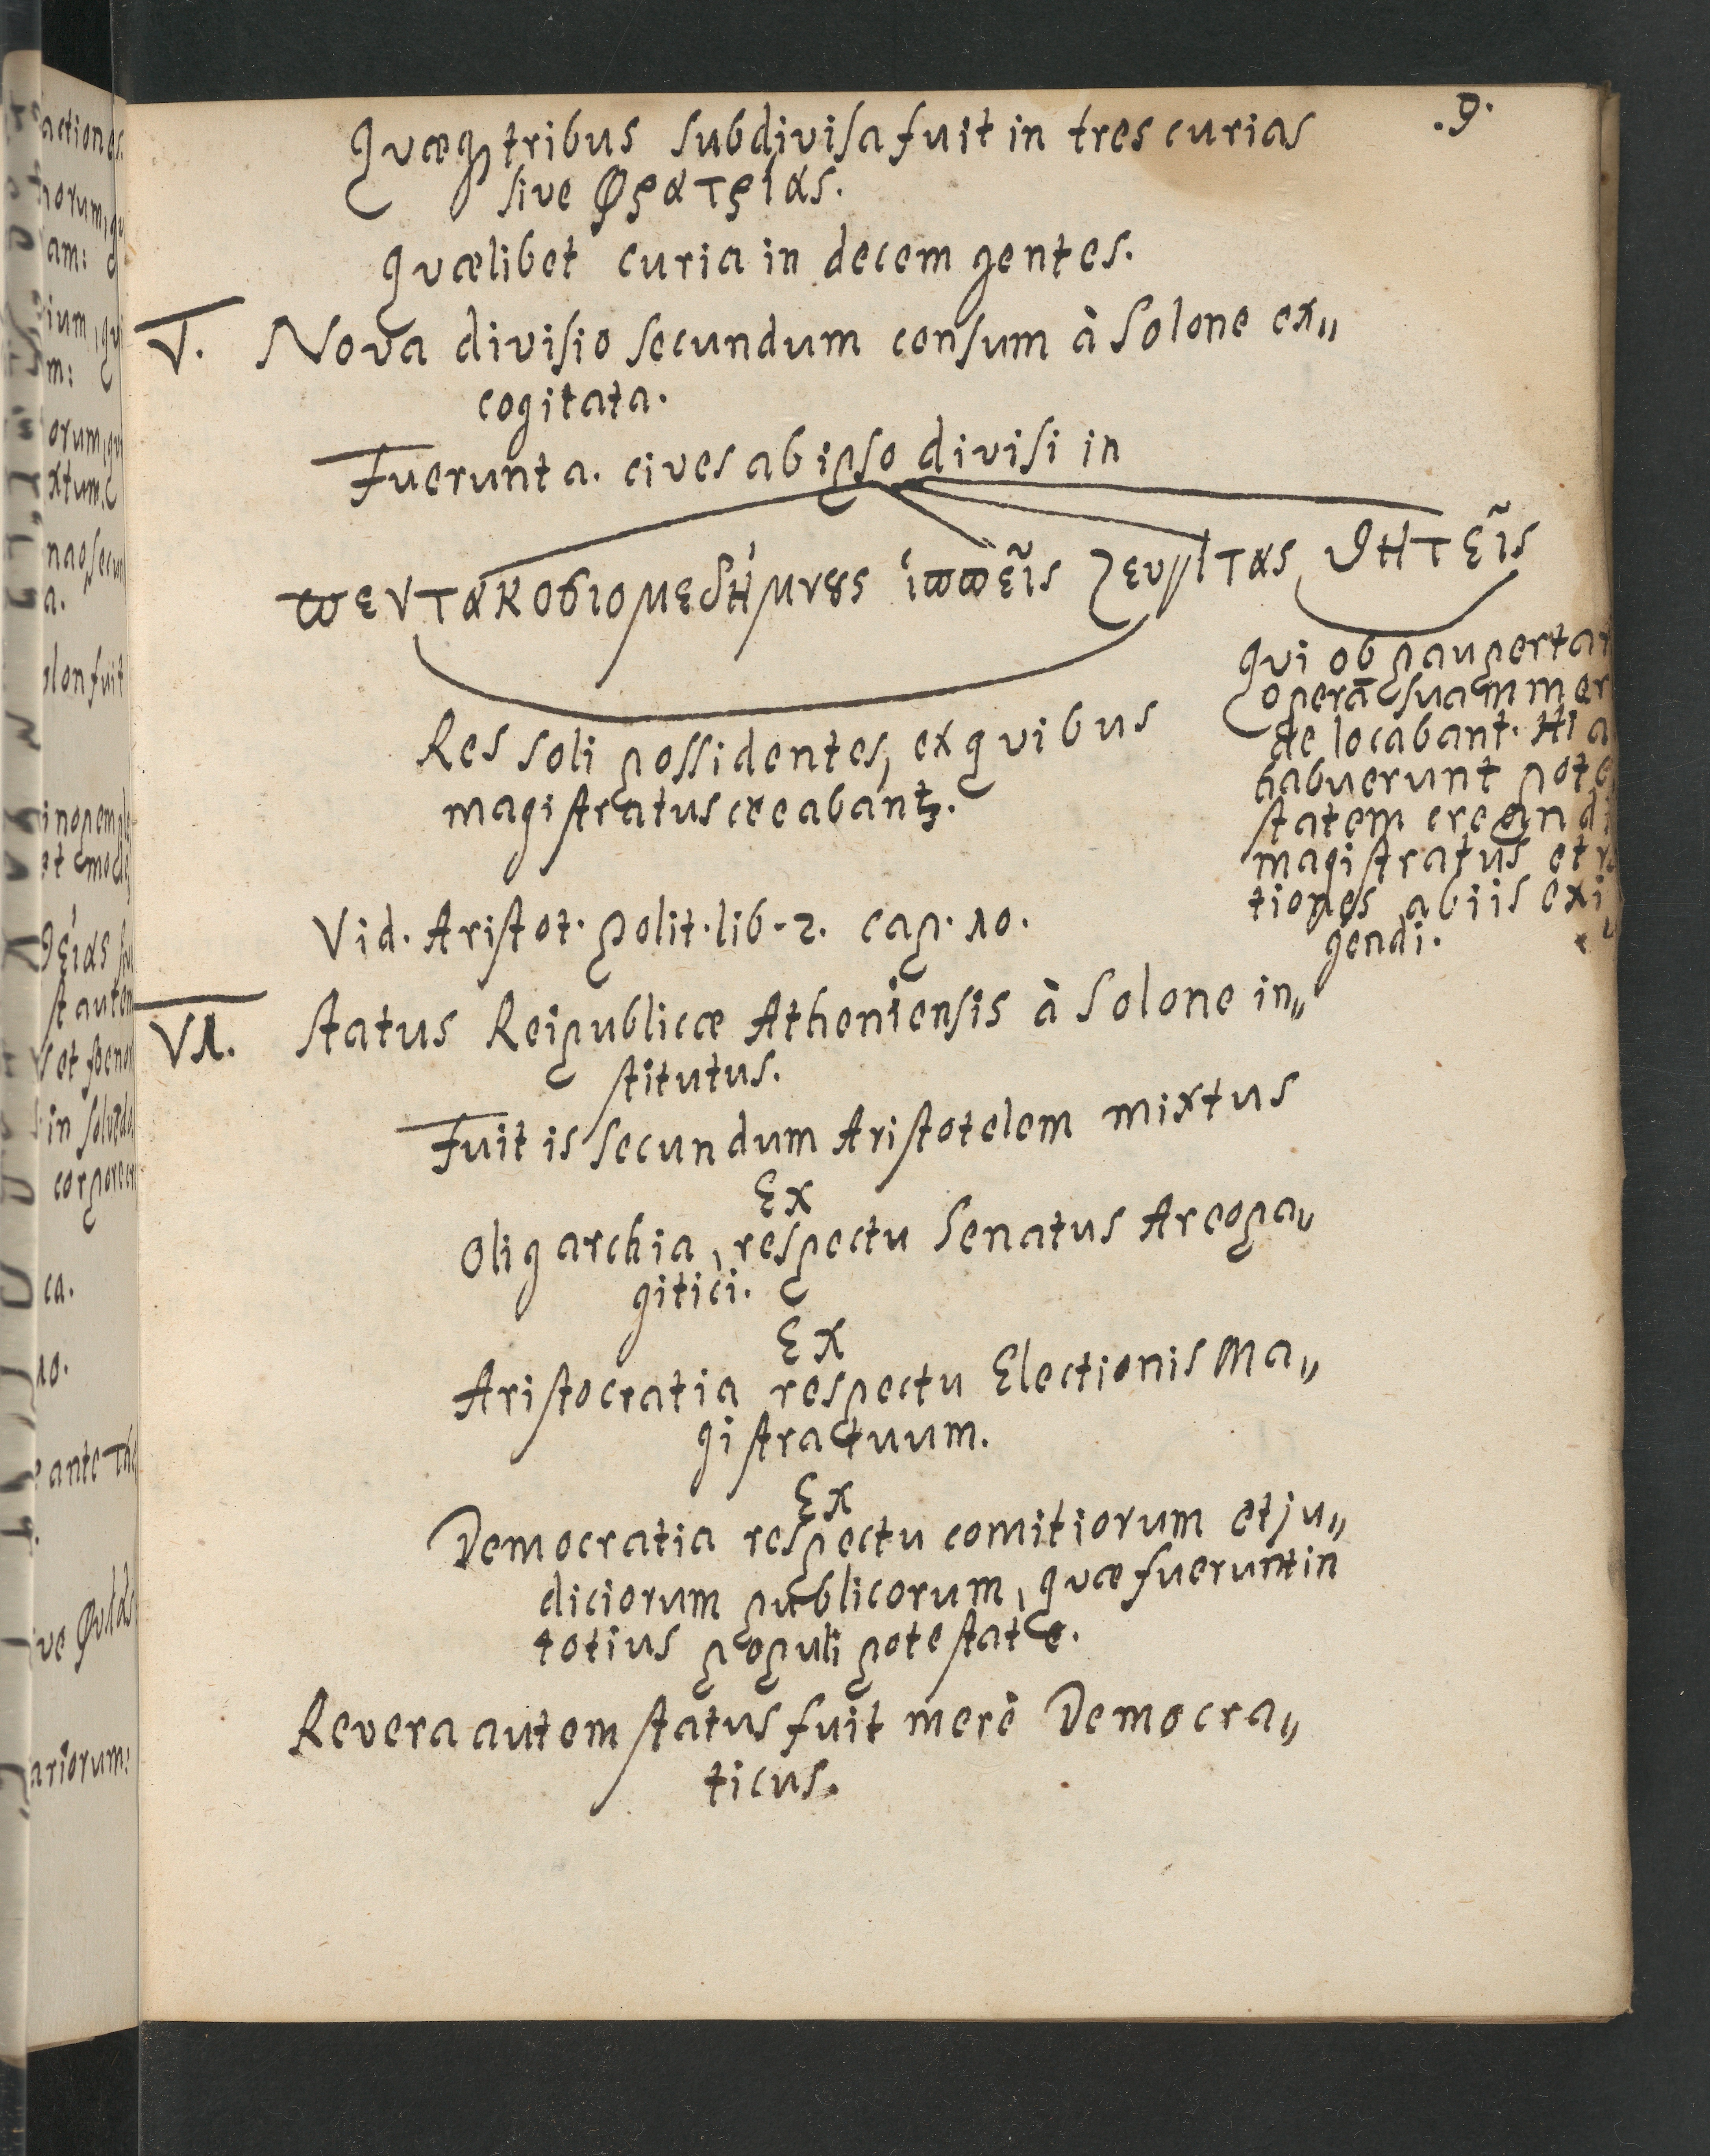 .9.
Quæq₃ tribus subdivisa fuit in tres curias
sive Φρατρίας.
Quælibet curia in decem gentes.
V. Nova divisio secundum censum à Solone ex„
cogitata.
Fuerunt a. cives ab ipso divisi in
ϖεντακοσιομεδήμνȣς ἱϖϖεῖς ζευγίτας θητεῖς
Res soli possidentes, ex quibus
magistratus creabantʒ.
Qui ob paupertat
operā suam mer
de locabant. Hi a
habuerunt pote
statem creandi
magistratus et r
tiones ab iis exi
gendi.
Vid. Aristot. polit. lib. 2. cap. 10.
VI. Status Reipublicæ Atheniensis à Solone in„
stitutus.
Fuit is secundum Aristotelem mixtus
Ex
Oligarchia, respectu Senatus Areopa„
gitici.
Ex
Aristocratia respectu Electionis Ma„
gistratuum.
Ex
Democratia respectu comitiorum et ju„
diciorum publicorum, quæ fuerunt in
totius populi potestate.
Revera autem status fuit merè Democra„
ticus.